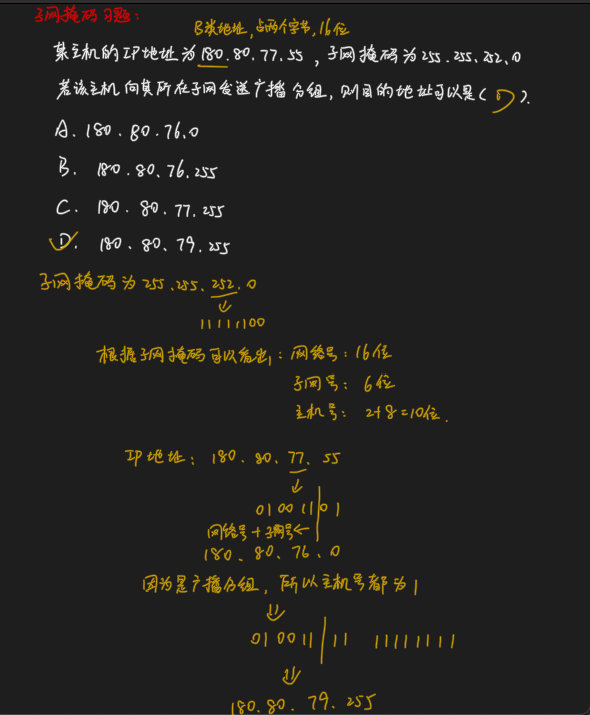 子网掩码习题：
B类地址，占两个字节，16位
某主机的IP地址为180.80.77.55，子网掩码为255.255.252.0
若该主机向其所在子网发送广播分组，则目的地址可以是（D）.
A. 180.80.76.0
B. 180.80.76.255
C. 180.80.77.255
D. 180.80.79.255
子网掩码为255.255.252.0
11111100
根据子网掩码可以看出：网络号：16位
子网号：6位
主机号：2+8=10位.
IP地址：180.80.77.55
010011|01
网络号+子网号←
180.80.76.0
因为是广播分组，所以主机号都为1
010011|11 11111111
180.80.79.255